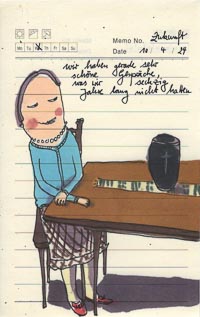 Memo No. Zukunft
Mo Tu W Th Fr Sa Su
Date 10 / 4 / 29
wir haben gerade sehr
schöne Gespräche,
was wir sechzig
Jahre lang nicht hatten